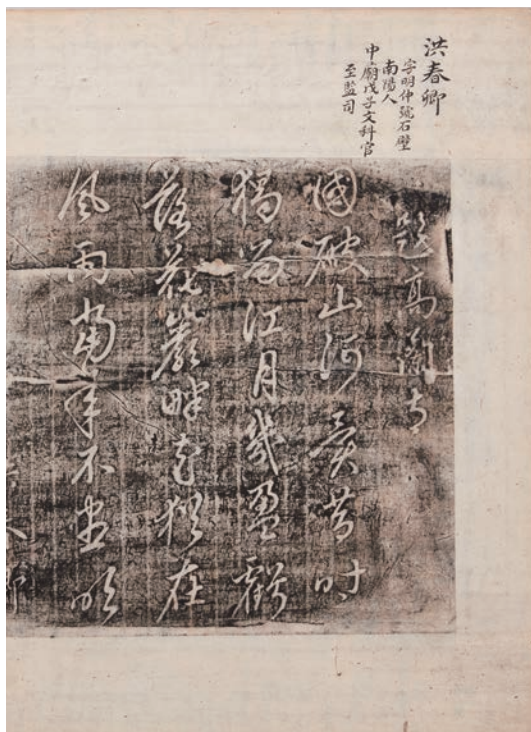 洪春卿
字明仲號石壁
南陽人
中廟戊子文科官
至監司
題高蘭寺
國破山河異昔時
獨留江月幾盈虧
落花巖畔花猶在
風雨當年不盡吹